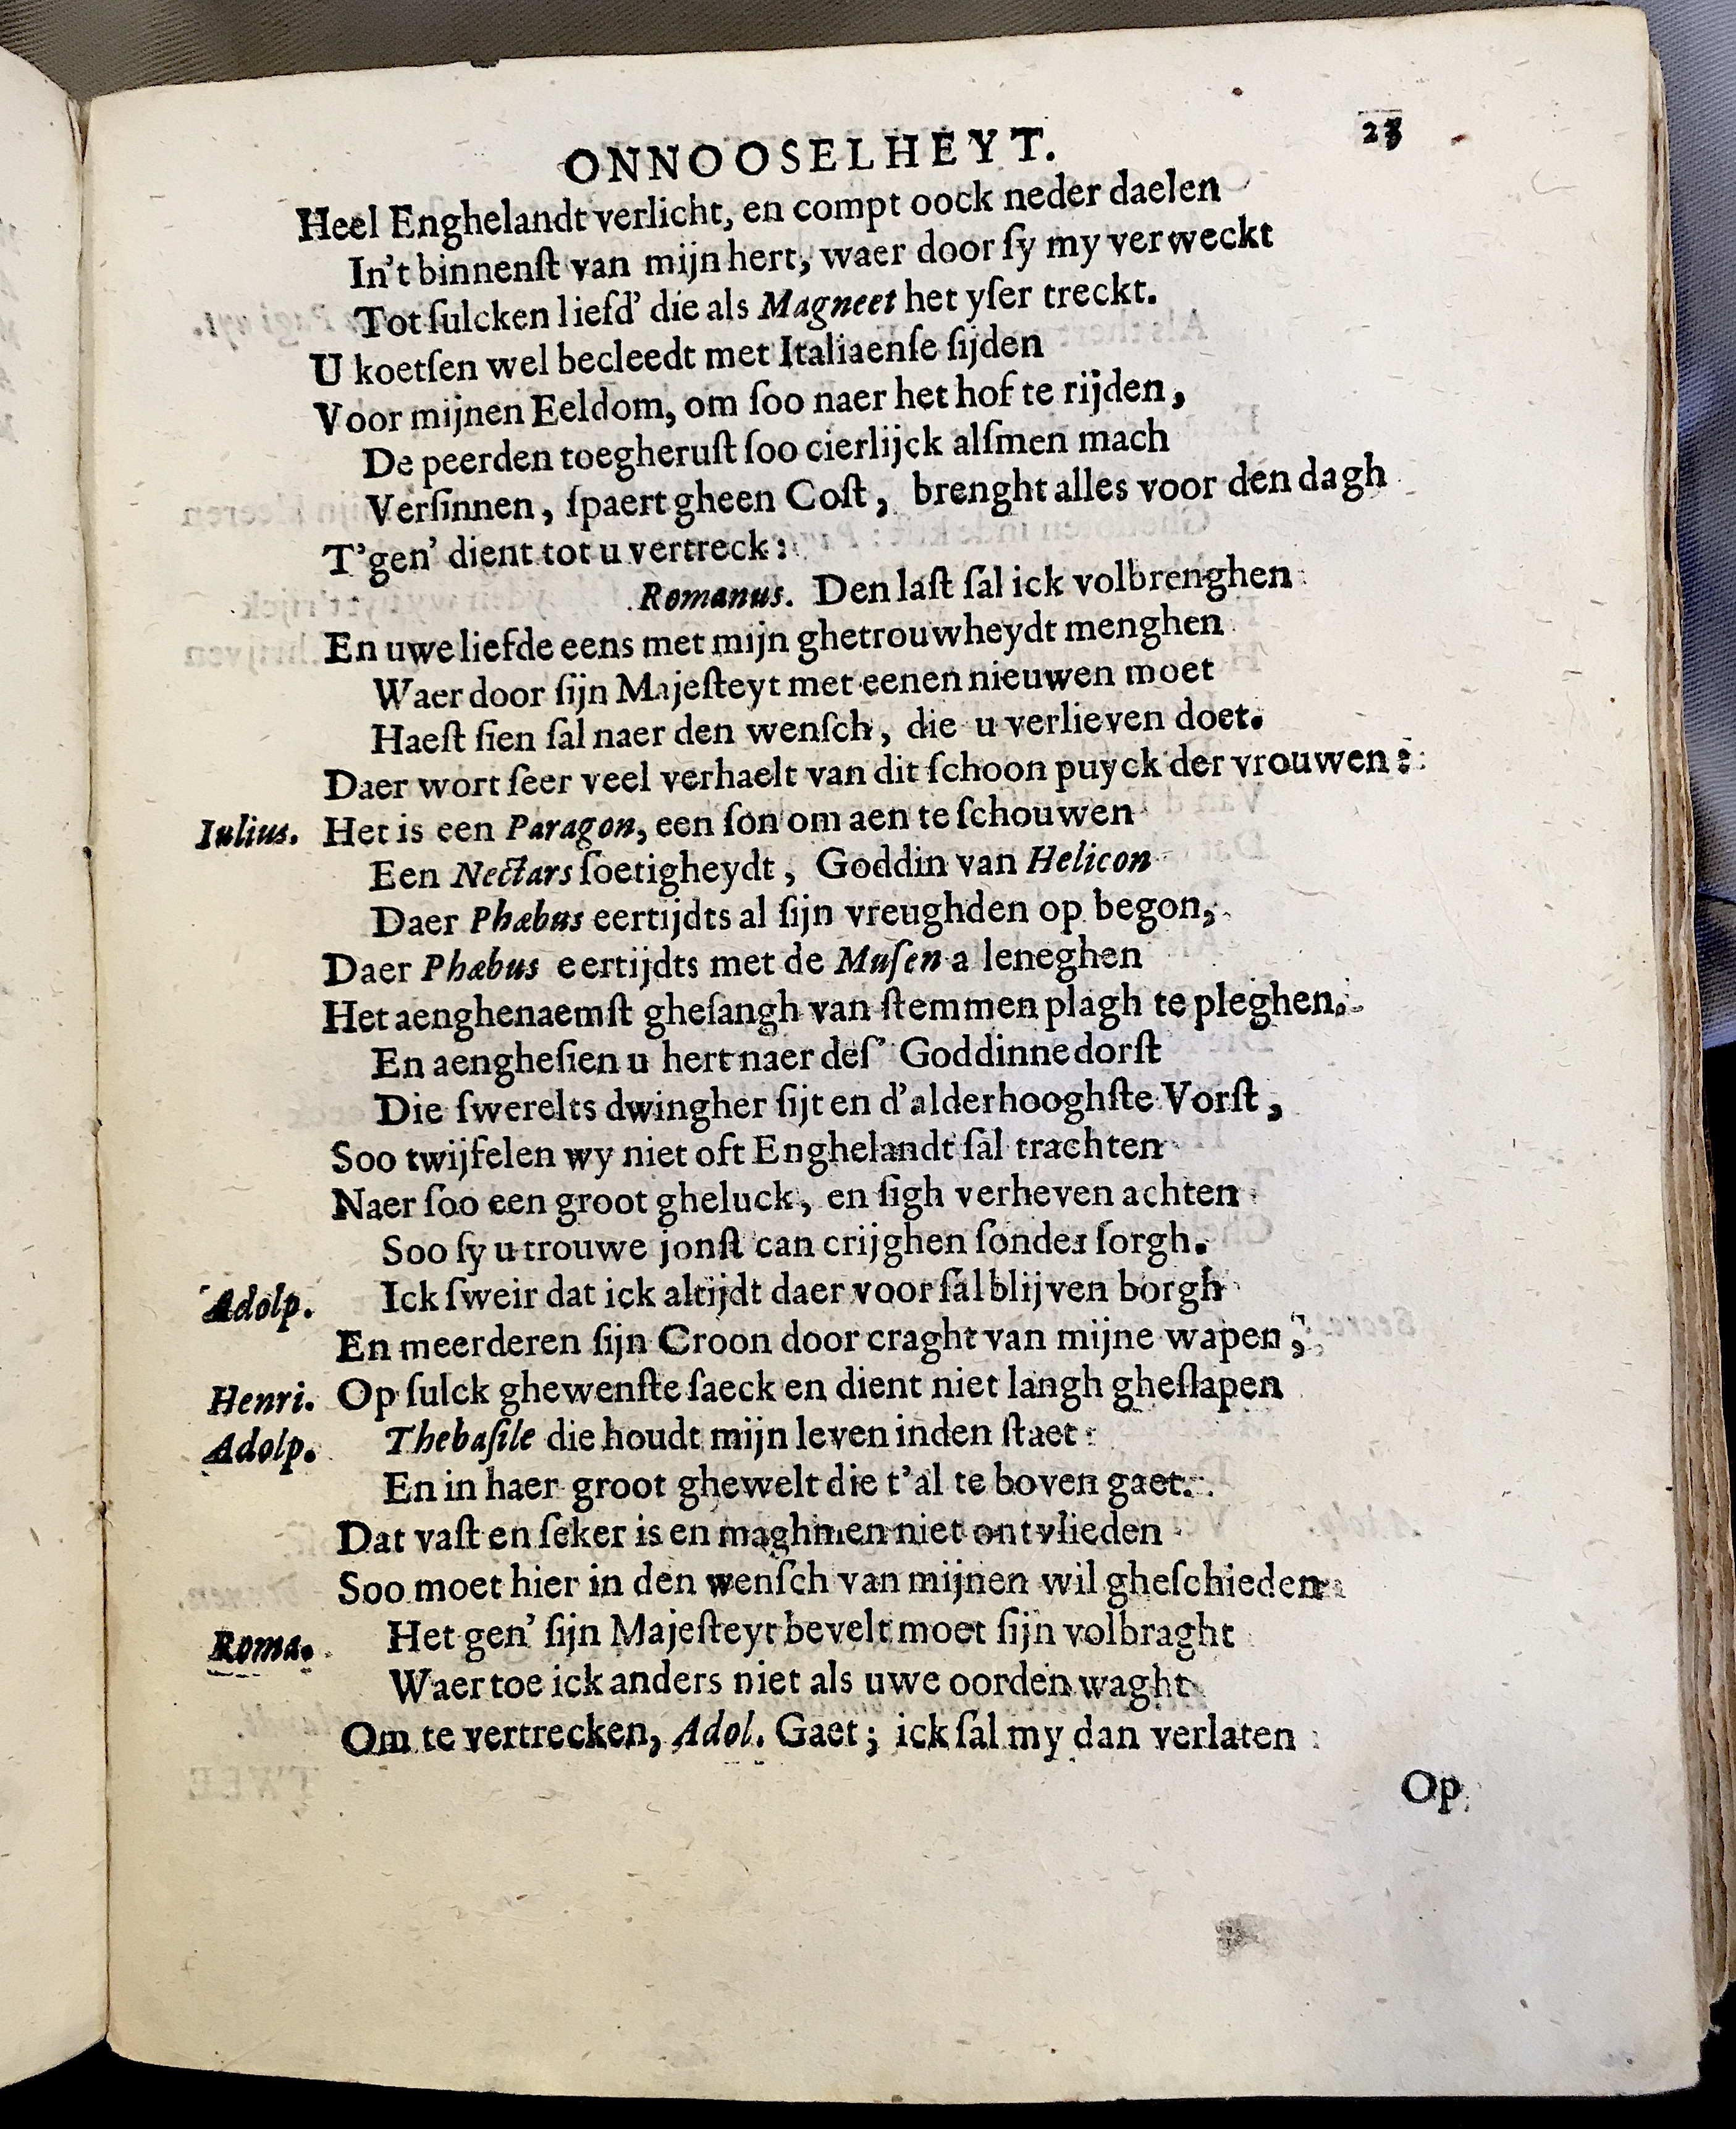 ONNOOSELHEYT. 23
Heel Enghelandt verlicht, en compt oock neder daelen
In't binnenſt van mijn hert, waer door ſy my verweckt
Tot ſulcken liefd' die als Magneet het yſer treckt.
U koetſen wel becleedt met Italiaenſe ſijden
Voor mijnen Eeldom, om ſoo naer het hof te rijden,
De peerden toegheruſt ſoo cierlijck alſmen mach
Verſinnen, ſpaert gheen Coſt, brenght alles voor den dagh
T'gen' dient tot u vertreck:
Romanus. Den laſt ſal ick volbrenghen
En uwe liefde eens met mijn ghetrouwheydt menghen
Waer door ſijn Majeſteyt met eenen nieuwen moet
Haeſt ſien ſal naer den wenſch, die u verlieven doet.
Daer wort ſeer veel verhaelt van dit ſchoon puyck der vrouwen:
Iulius. Het is een Paragon, een ſon om aen te ſchouwen
Een Nectars ſoetigheydt, Goddin van Helicon
Daer Phæbus eertijdts al ſijn vreughden op begon,
Daer Phæbus eertijdts met de Muſen a leneghen
Het aenghenaemſt gheſangh van ſtemmen plagh te pleghen.
En aengheſien u hert naer deſ' Goddinne dorſt
Die ſwerelts dwingher ſijt en d'alderhooghſte Vorſt,
Soo twijfelen wy niet oft Enghelandt ſal trachten
Naer ſoo een groot gheluck, en ſigh verheven achten
Soo ſy u trouwe jonſt can crijghen ſonder ſorgh.
Adolp. Ick ſweir dat ick altijdt daer voor ſal blijven borgh
En meerderen ſijn Croon door craght van mijne wapen;
Henri. Op ſulck ghewenſte ſaeck en dient niet langh gheſlapen
Adolp. Thebaſile die houdt mijn leven inden ſtaet:
En in haer groot ghewelt die t'al te boven gaet.
Dat vaſt en ſeker is en maghmen niet ontvlieden
Soo moet hier in den wenſch van mijnen wil gheſchieden
Roma. Het gen' ſijn Majeſteyt bevelt moet ſijn volbraght
Waer toe ick anders niet als uwe oorden waght
Om te vertrecken, Adol. Gaet; ick ſal my dan verlaten
Op